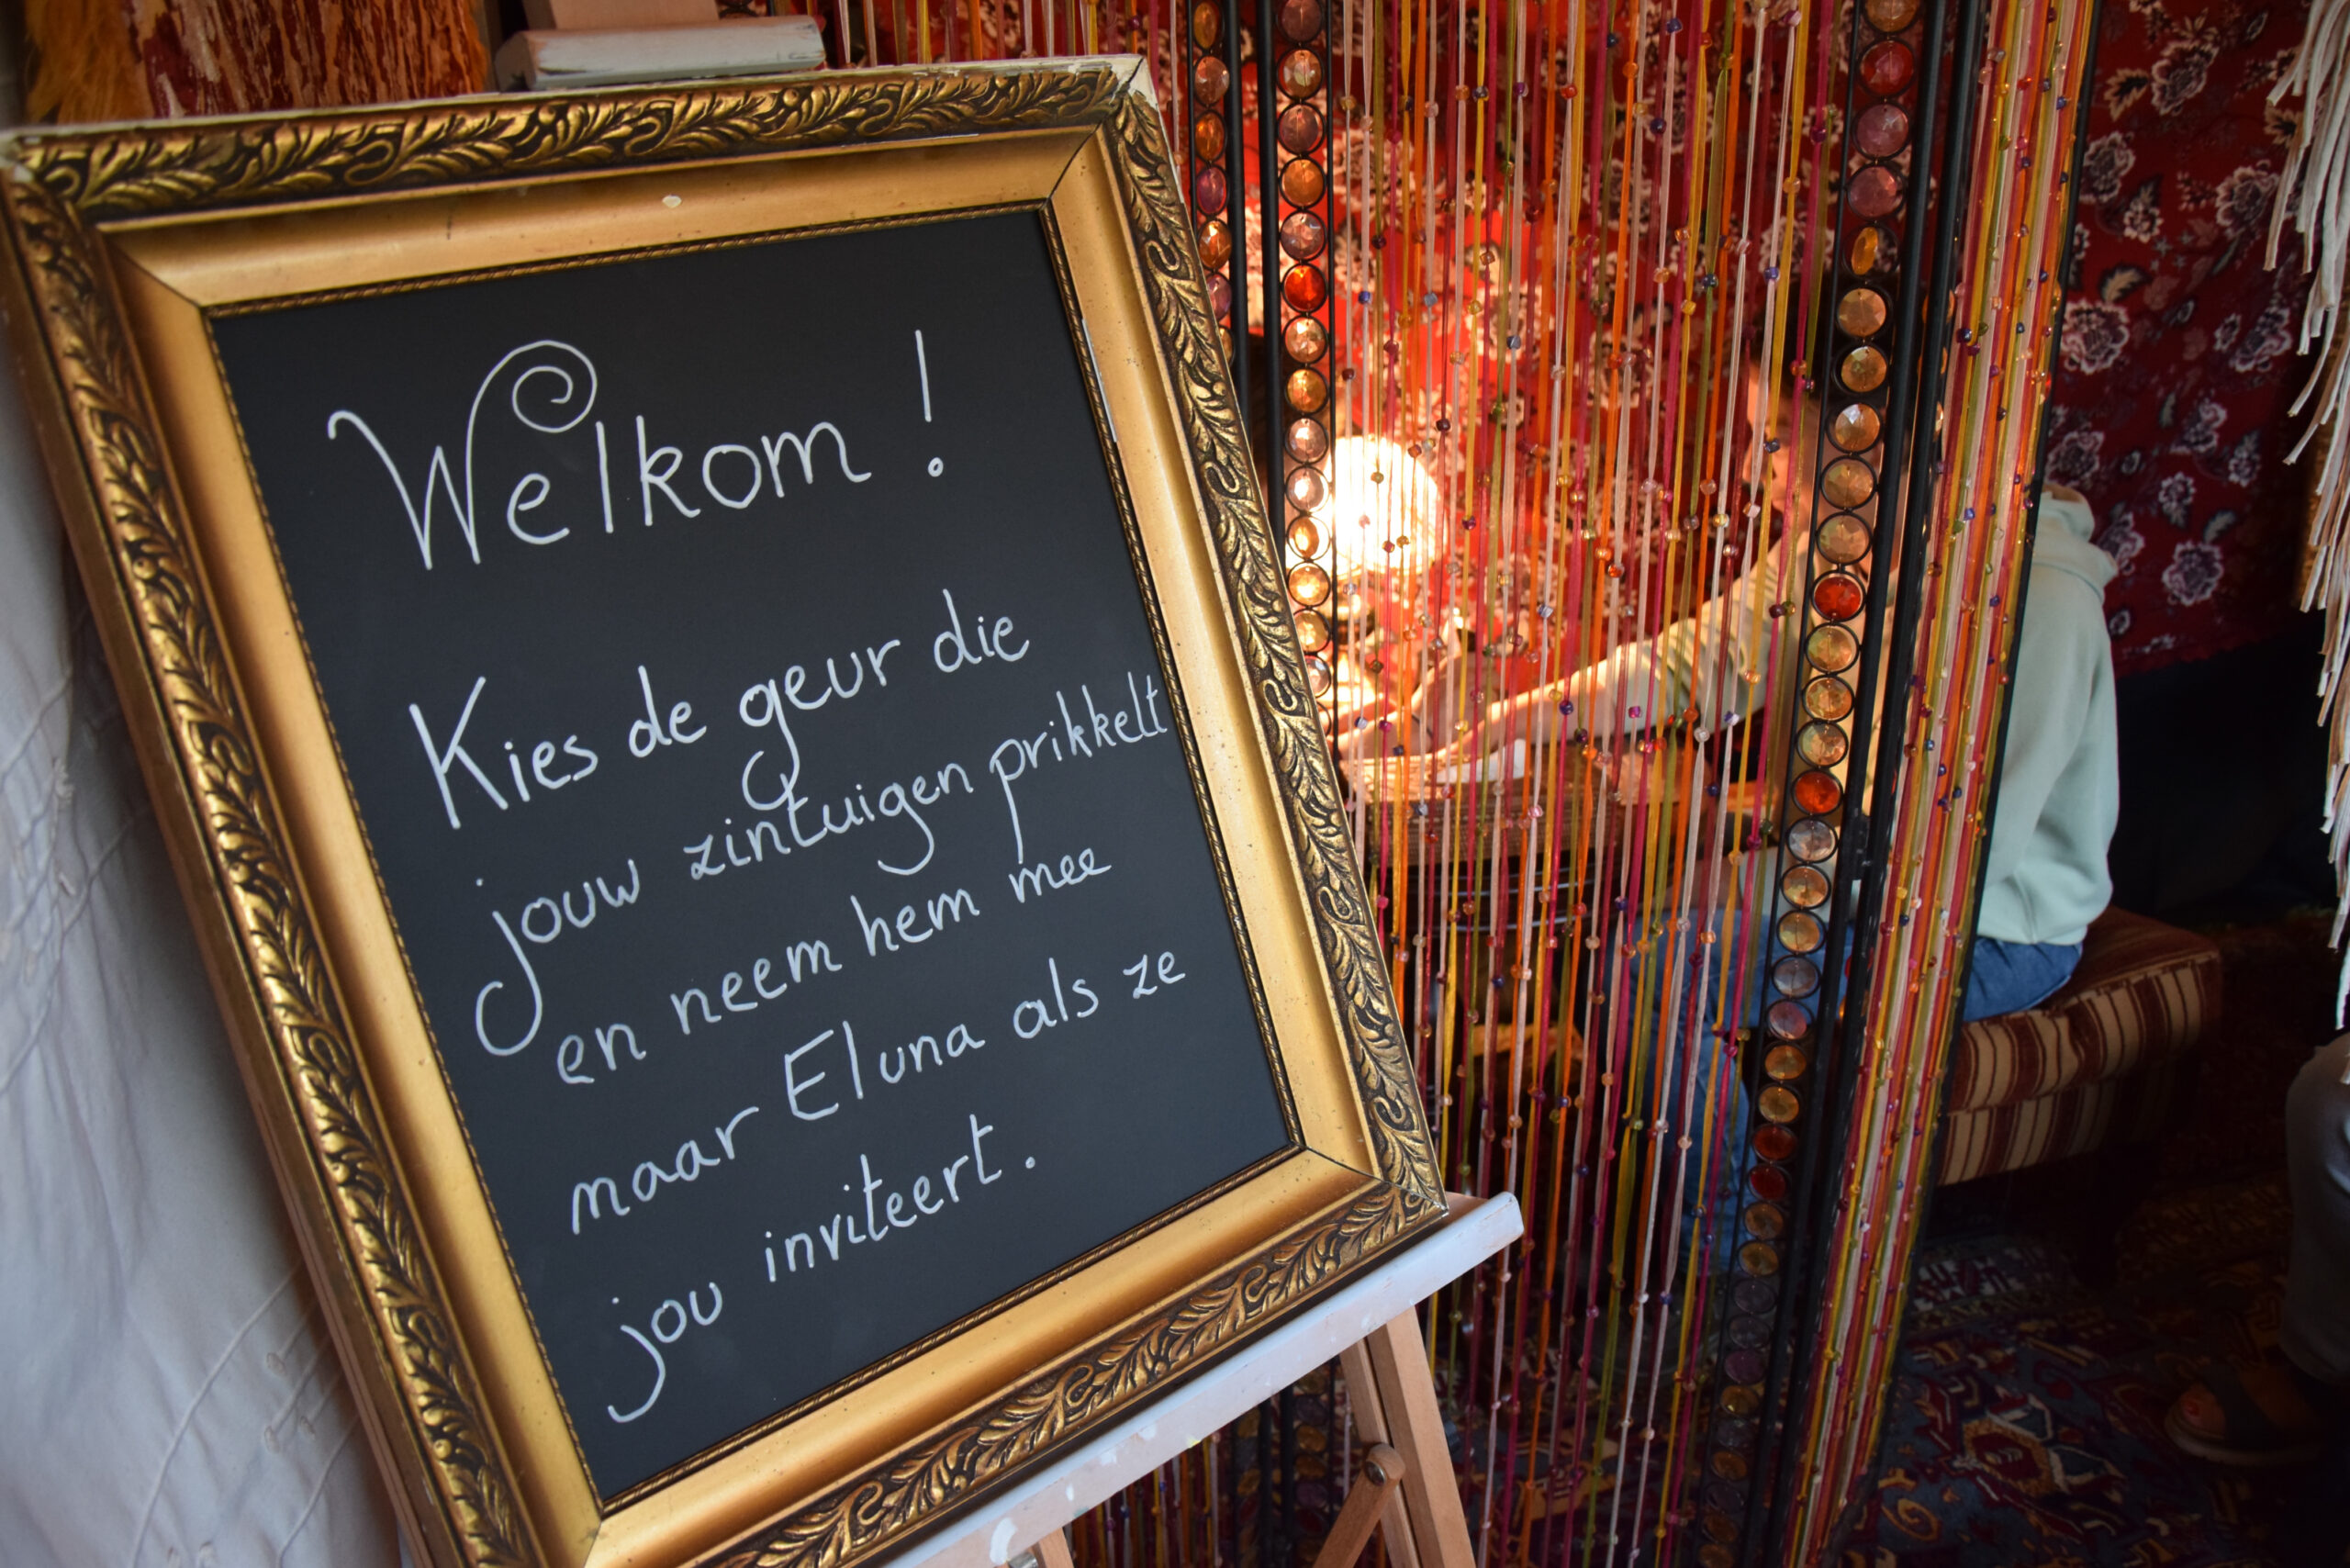 Welkom !
Kies de geur die
jouw zintuigen prikkelt
en neem hem mee
maar Eluna als ze
jou inviteert.